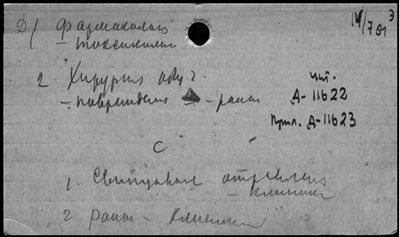 Д/ Фармакология
- токсикология
14/7 51 Э
2 Хирургия общ. 2
- повреждения - раны
чит.
Д-11622
Прил. Д-11623
С
1. Свинцовые отравления
- клиника
2 раны - клиника